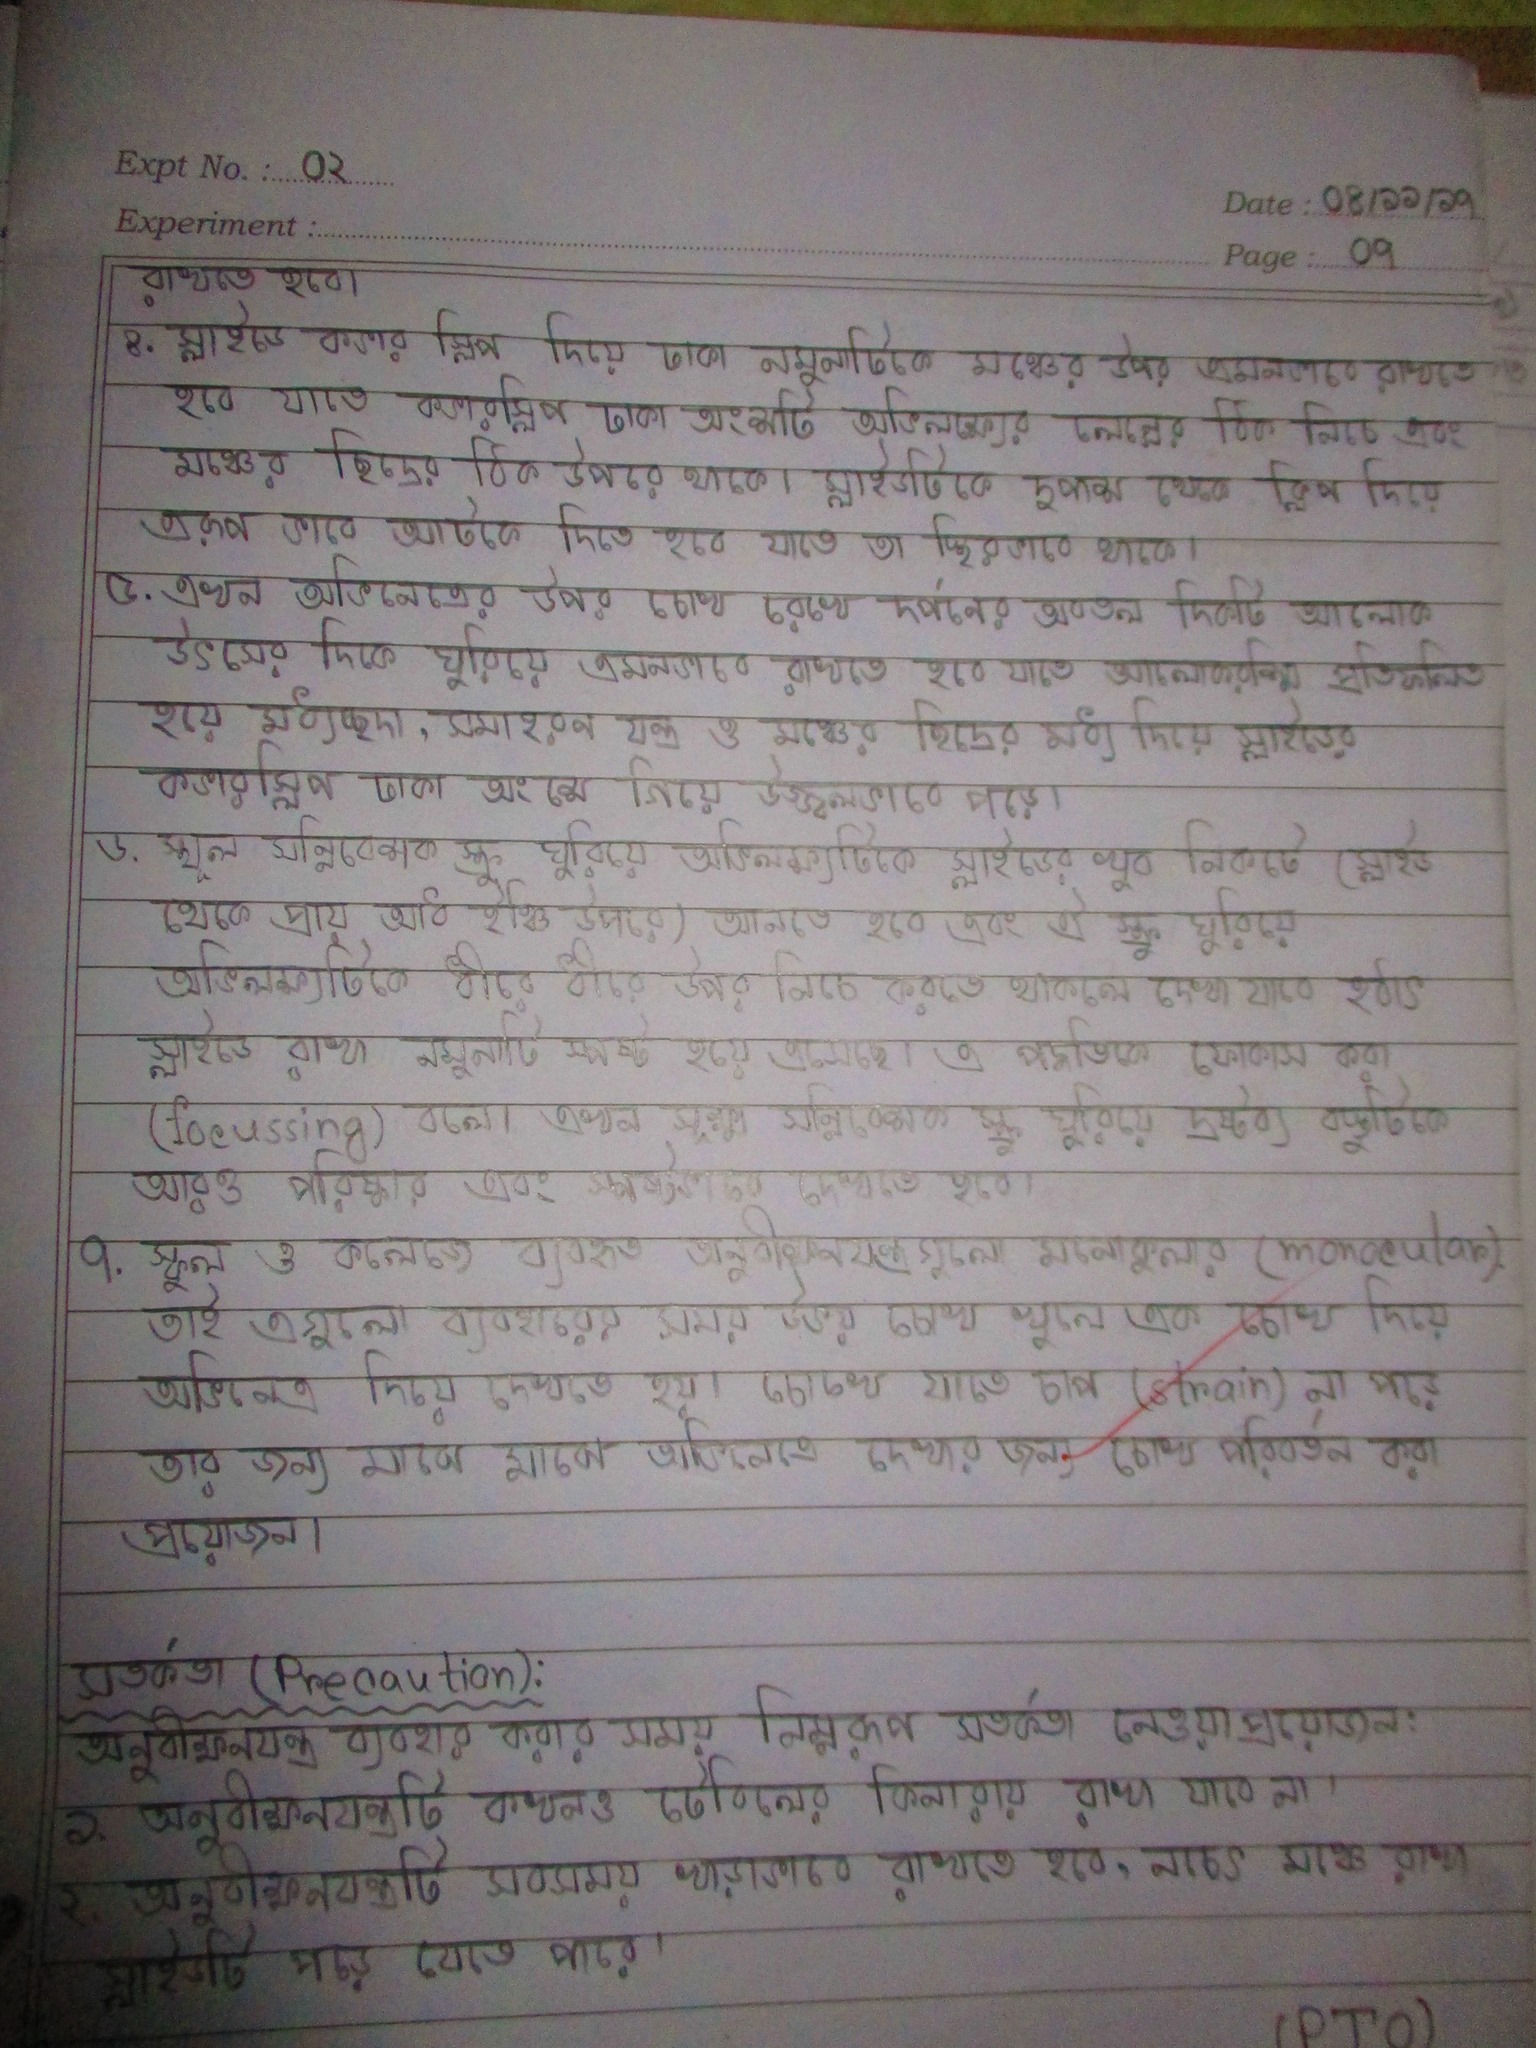 Expt No. : ০২
Date : ০৪/১১/১৭
Experiment :
Page : ০৭
রাখতে হবে।
৪. স্লাইডে কভার স্লিপ দিয়ে ঢাকা নমুনাটিকে মঞ্চের উপর এমনভাবে রাখতে
হবে যাতে কভারস্লিপ ঢাকা অংশটি অভিলক্ষ্যের লেন্সের ঠিক নিচে এবং
মঞ্চের ছিদ্রের ঠিক উপরে থাকে। স্লাইডটিকে দুপাশ থেকে ক্লিপ দিয়ে
এরূপ ভাবে আটকে দিতে হবে যাতে তা স্থিরভাবে থাকে।
৫. এখন অভিনেত্রের উপর চোখ রেখে দর্পনের অবতল দিকটি আলোক
উৎসের দিকে ঘুরিয়ে এমনভাবে রাখতে হবে যাতে আলোকরশ্মি প্রতিফলিত
হয়ে মধ্যচ্ছদা, সমাহরণ যন্ত্র ও মঞ্চের ছিদ্রের মধ্য দিয়ে স্লাইডের
কভারস্লিপ ঢাকা অংশে গিয়ে উজ্জ্বলভাবে পড়ে।
৬. স্থূল সন্নিবেশক স্ক্রু ঘুরিয়ে অভিলক্ষ্যটিকে স্লাইডের খুব নিকটে (স্লাইড
থেকে প্রায় আধ ইঞ্চি উপরে) আনতে হবে এবং ঐ স্ক্রু ঘুরিয়ে
অভিলক্ষ্যটিকে ধীরে ধীরে উপর নিচে করতে থাকলে দেখা যাবে হঠাৎ
স্লাইডে রাখা নমুনাটি স্পষ্ট হয়ে এসেছে। এ পদ্ধতিকে ফোকাস করা
(focussing) বলে। এখন সূক্ষ্ম সন্নিবেশক স্ক্রু ঘুরিয়ে দ্রষ্টব্য বস্তুটিকে
আরও পরিষ্কার এবং স্পষ্টভাবে দেখতে হবে।
৭. স্কুল ও কলেজে ব্যবহৃত অনুবীক্ষনযন্ত্রগুলো মনোকুলার (monocular)
তাই এগুলো ব্যবহারের সময় উভয় চোখ খুলে এক চোখ দিয়ে
অভিনেত্র দিয়ে দেখতে হয়। চোখে যাতে চাপ (strain) না পড়ে
তার জন্য মাঝে মাঝে অভিনেত্রে দেখার জন্য চোখ পরিবর্তন করা
প্রয়োজন।
সতর্কতা (Precaution):
অনুবীক্ষনযন্ত্র ব্যবহার করার সময় নিম্নরূপ সতর্কতা নেওয়া প্রয়োজন:
১. অনুবীক্ষনযন্ত্রটি কখনও টেবিলের কিনারায় রাখা যাবে না।
২. অনুবীক্ষনযন্ত্রটি সবসময় খাড়াভাবে রাখতে হবে, নচেৎ মঞ্চে রাখা
স্লাইডটি পড়ে যেতে পারে।
(PTO)